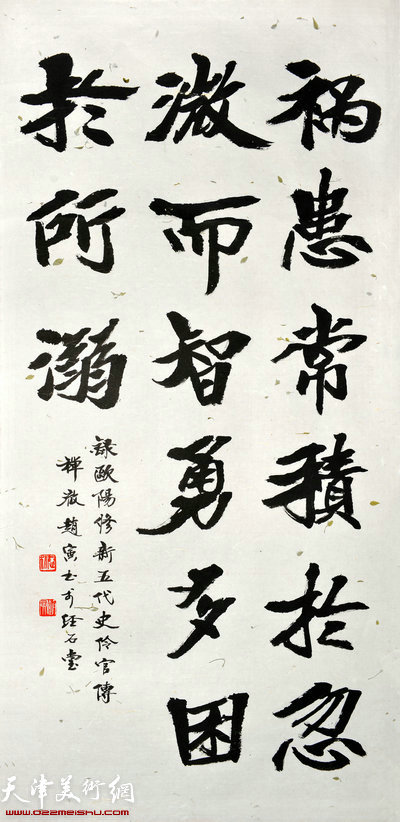 祸患常積於忽
微而智勇多困
於所溺
録歐陽修新五代史伶官傳
趙寅书於石堂
天津美術網
www.022meishu.com